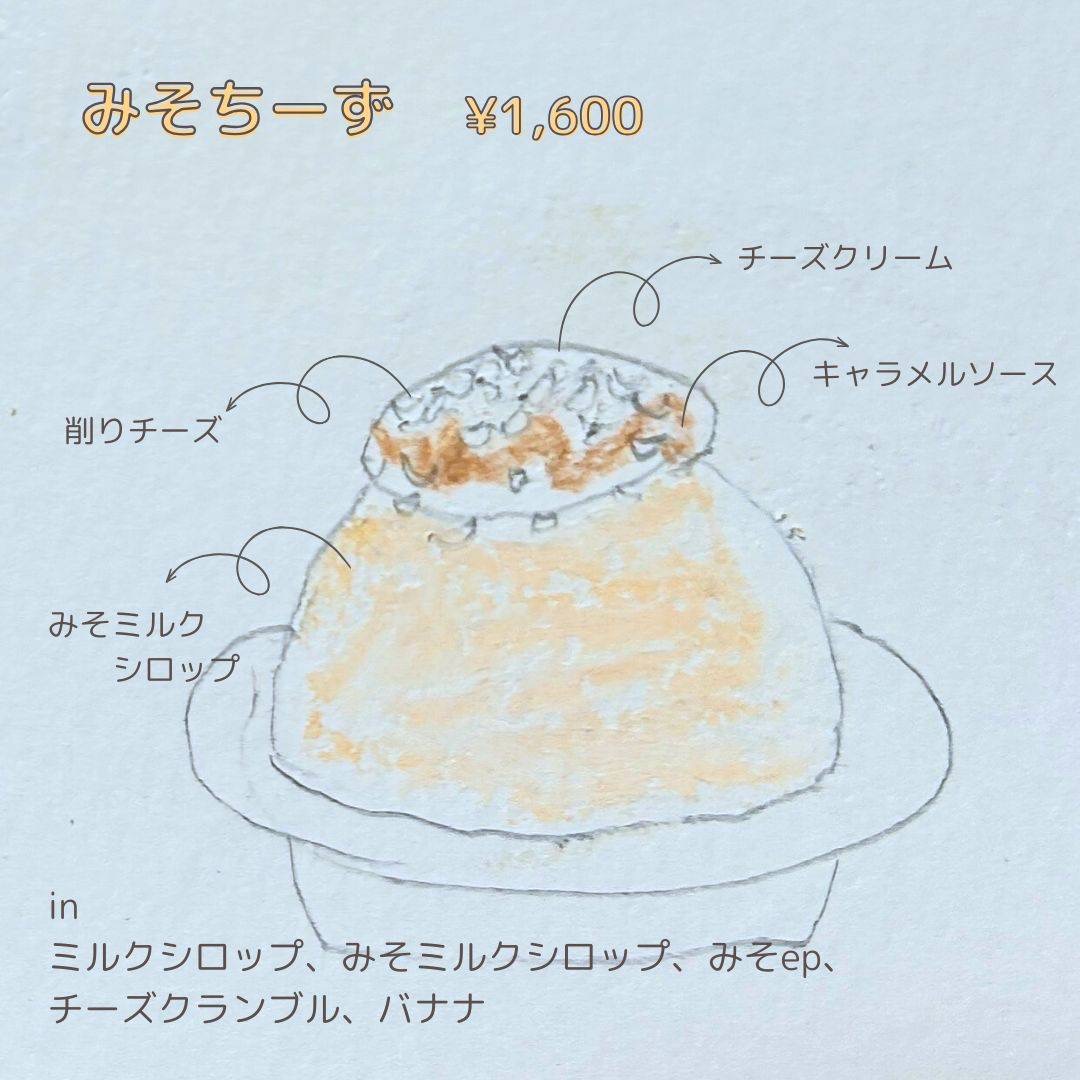 みそちーず ¥1,600
チーズクリーム
キャラメルソース
削りチーズ
みそミルク
シロップ
in
ミルクシロップ、みそミルクシロップ、みそep、
チーズクランブル、バナナ